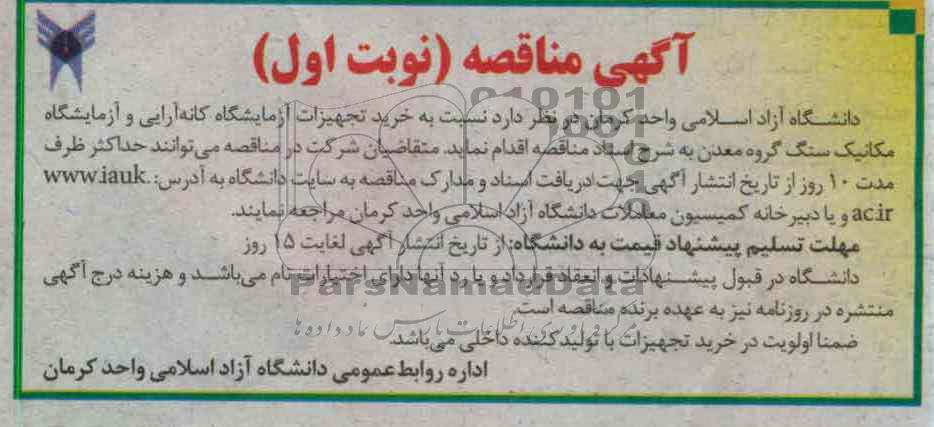 آگهی مناقصه (نوبت اول)
دانشگاه آزاد اسلامی واحد کرمان در نظر دارد نسبت به خرید تجهیزات آزمایشگاه کانه‌آرایی و آزمایشگاه
مکانیک سنگ گروه معدن به شرح اسناد مناقصه اقدام نماید. متقاضیان شرکت در مناقصه می‌توانند حداکثر ظرف
مدت ۱۰ روز از تاریخ انتشار آگهی جهت دریافت اسناد و مدارک مناقصه به سایت دانشگاه به آدرس: www.iauk.
ac.ir و یا دبیرخانه کمیسیون معاملات دانشگاه آزاد اسلامی واحد کرمان مراجعه نمایند.
مهلت تسلیم پیشنهاد قیمت به دانشگاه: از تاریخ انتشار آگهی لغایت ۱۵ روز
دانشگاه در قبول پیشنهادات و انعقاد قرارداد و یا رد آنها دارای اختیارات تام می‌باشد و هزینه درج آگهی
منتشره در روزنامه نیز به عهده برنده مناقصه است.
ضمنا اولویت در خرید تجهیزات با تولیدکننده داخلی می‌باشد.
اداره روابط عمومی دانشگاه آزاد اسلامی واحد کرمان
ParsNamadData